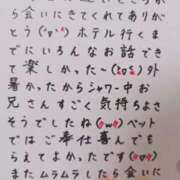 ら会いにきてくれてありが
とう(°▽°)♥♥ホテル行くま
でにいろんなお話できて
楽しかった〜(≧∇≦)外
暑かったからシャワー中お
兄さんすごく気持ちよさ
そうでしたね(♥∇♥)ベット
ではご奉仕喜んでも
らえてよかったです(♥∇♥)
またムラムラしたら会いに